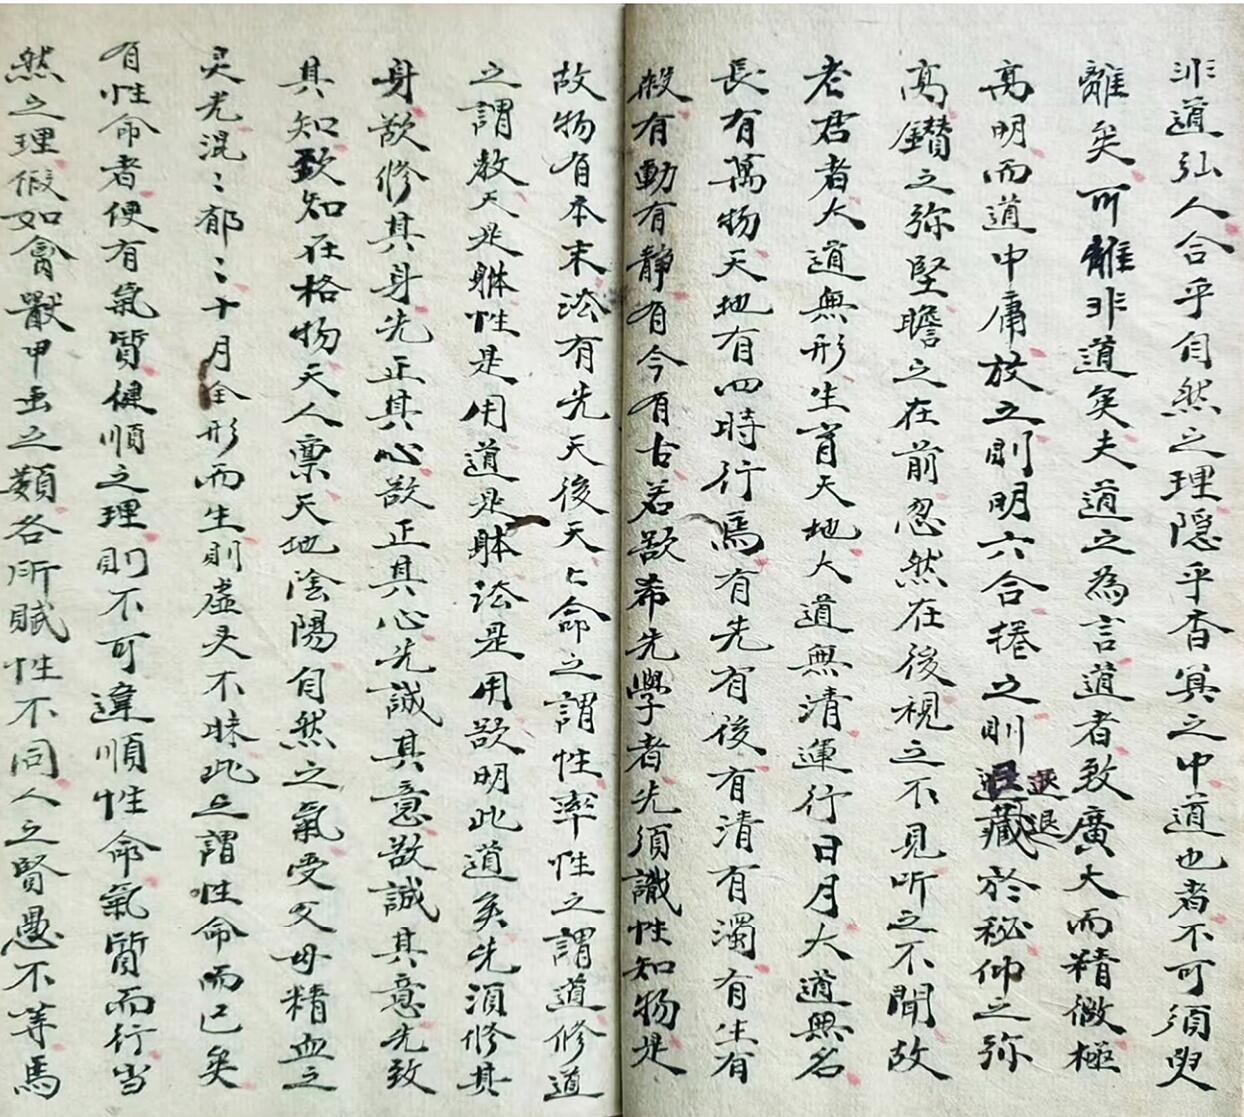 非道弘人合乎自然之理隐乎杳冥之中道也者不可須臾
離矣可離非道矣夫道之為言道者致廣大而精微極
高明而道中庸放之則明六合捲之則退藏於秘仰之弥
高鑽之弥堅瞻之在前忽然在後視之不見听之不聞故
老君者大道無形生育天地大道無清運行日月大道無名
長有萬物天地有四時行焉有先有後有清有濁有生有
殺有動有静有今有古若欲希先學者先須識性知物是
故物有本末法有先天後天上命之謂性率性之謂道修道
之謂教天是躰性是用道是躰法是用欲明此道矣先須修其
身欲修其身先正其心欲正其心先誠其意欲誠其意先致
其知致知在格物天人禀天地陰陽自然之氣受父母精血之
灵光混〻郁〻十月全形而生則虚灵不昧此之謂性命而已矣
有性命者便有氣質健順之理則不可違順性命氣質而行当
然之理假如禽獸甲虫之類各所賦性不同人之賢愚不等焉